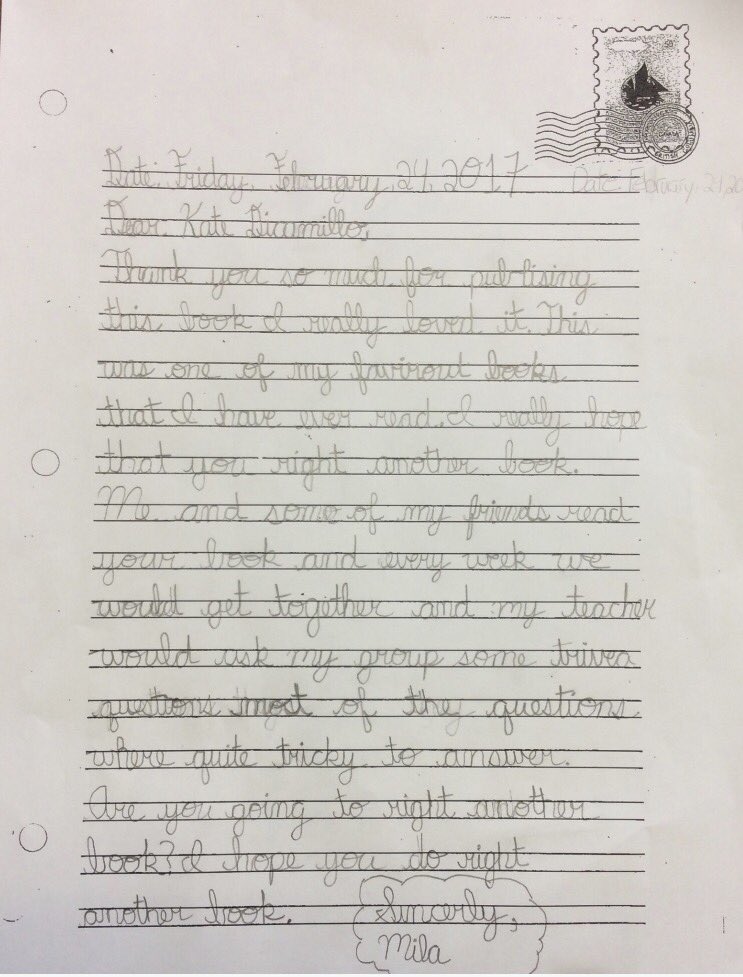 Date: Friday, February, 24, 2017
Date: February 24, 20
Dear Kate Dicamillo,
Thank you so much for publising
this book I really loved it. This
was one of my favirout books
that I have ever read. I really hope
that you right another book.
Me and some of my friends read
your book and every week we
would get together and my teacher
would ask my group some trivea
questions most of they questions
where quite tricky to answer.
Are you going to right another
book? I hope you do right
another book.
Sincerly,
Mila